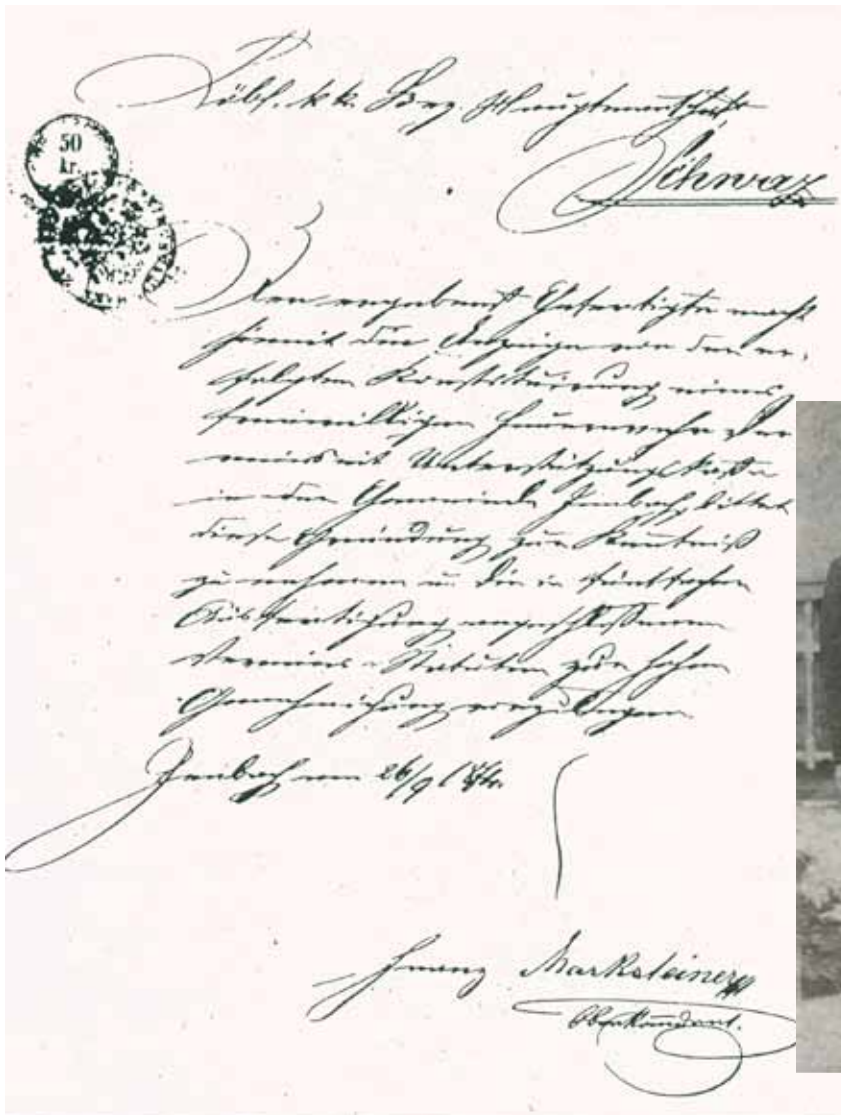 Löbl. k. k. Bez. Hauptmannschaft
Schwaz
50
kr.
Der ergebenst Gefertigte macht
hiemit die Anzeige von der er-
folgten Konstituirung eines
freiwilligen Feuerwehr Ver
eines mit Unterstützungs Kassa
in der Gemeinde Jenbach, bittet
diese Gründung zur Kentniß
zu nehmen u. die in fünffacher
Ausfertigung angeschloßenen
Vereins-Statuten zur hohen
Genehmigung vorzulegen.
Jenbach am 26/9 1874.
Franz Marksteiner
Oberkomdant.